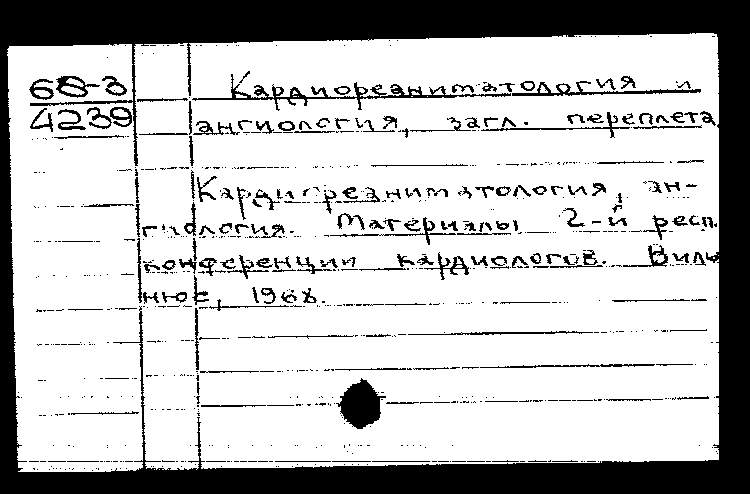 68-3
4239
Кардиореаниматология и
ангиология, загл. переплета
Кардиореаниматология, ан-
гиология. Материалы 2-й респ.
конференции кардиологов. Виль
нюс, 1968.